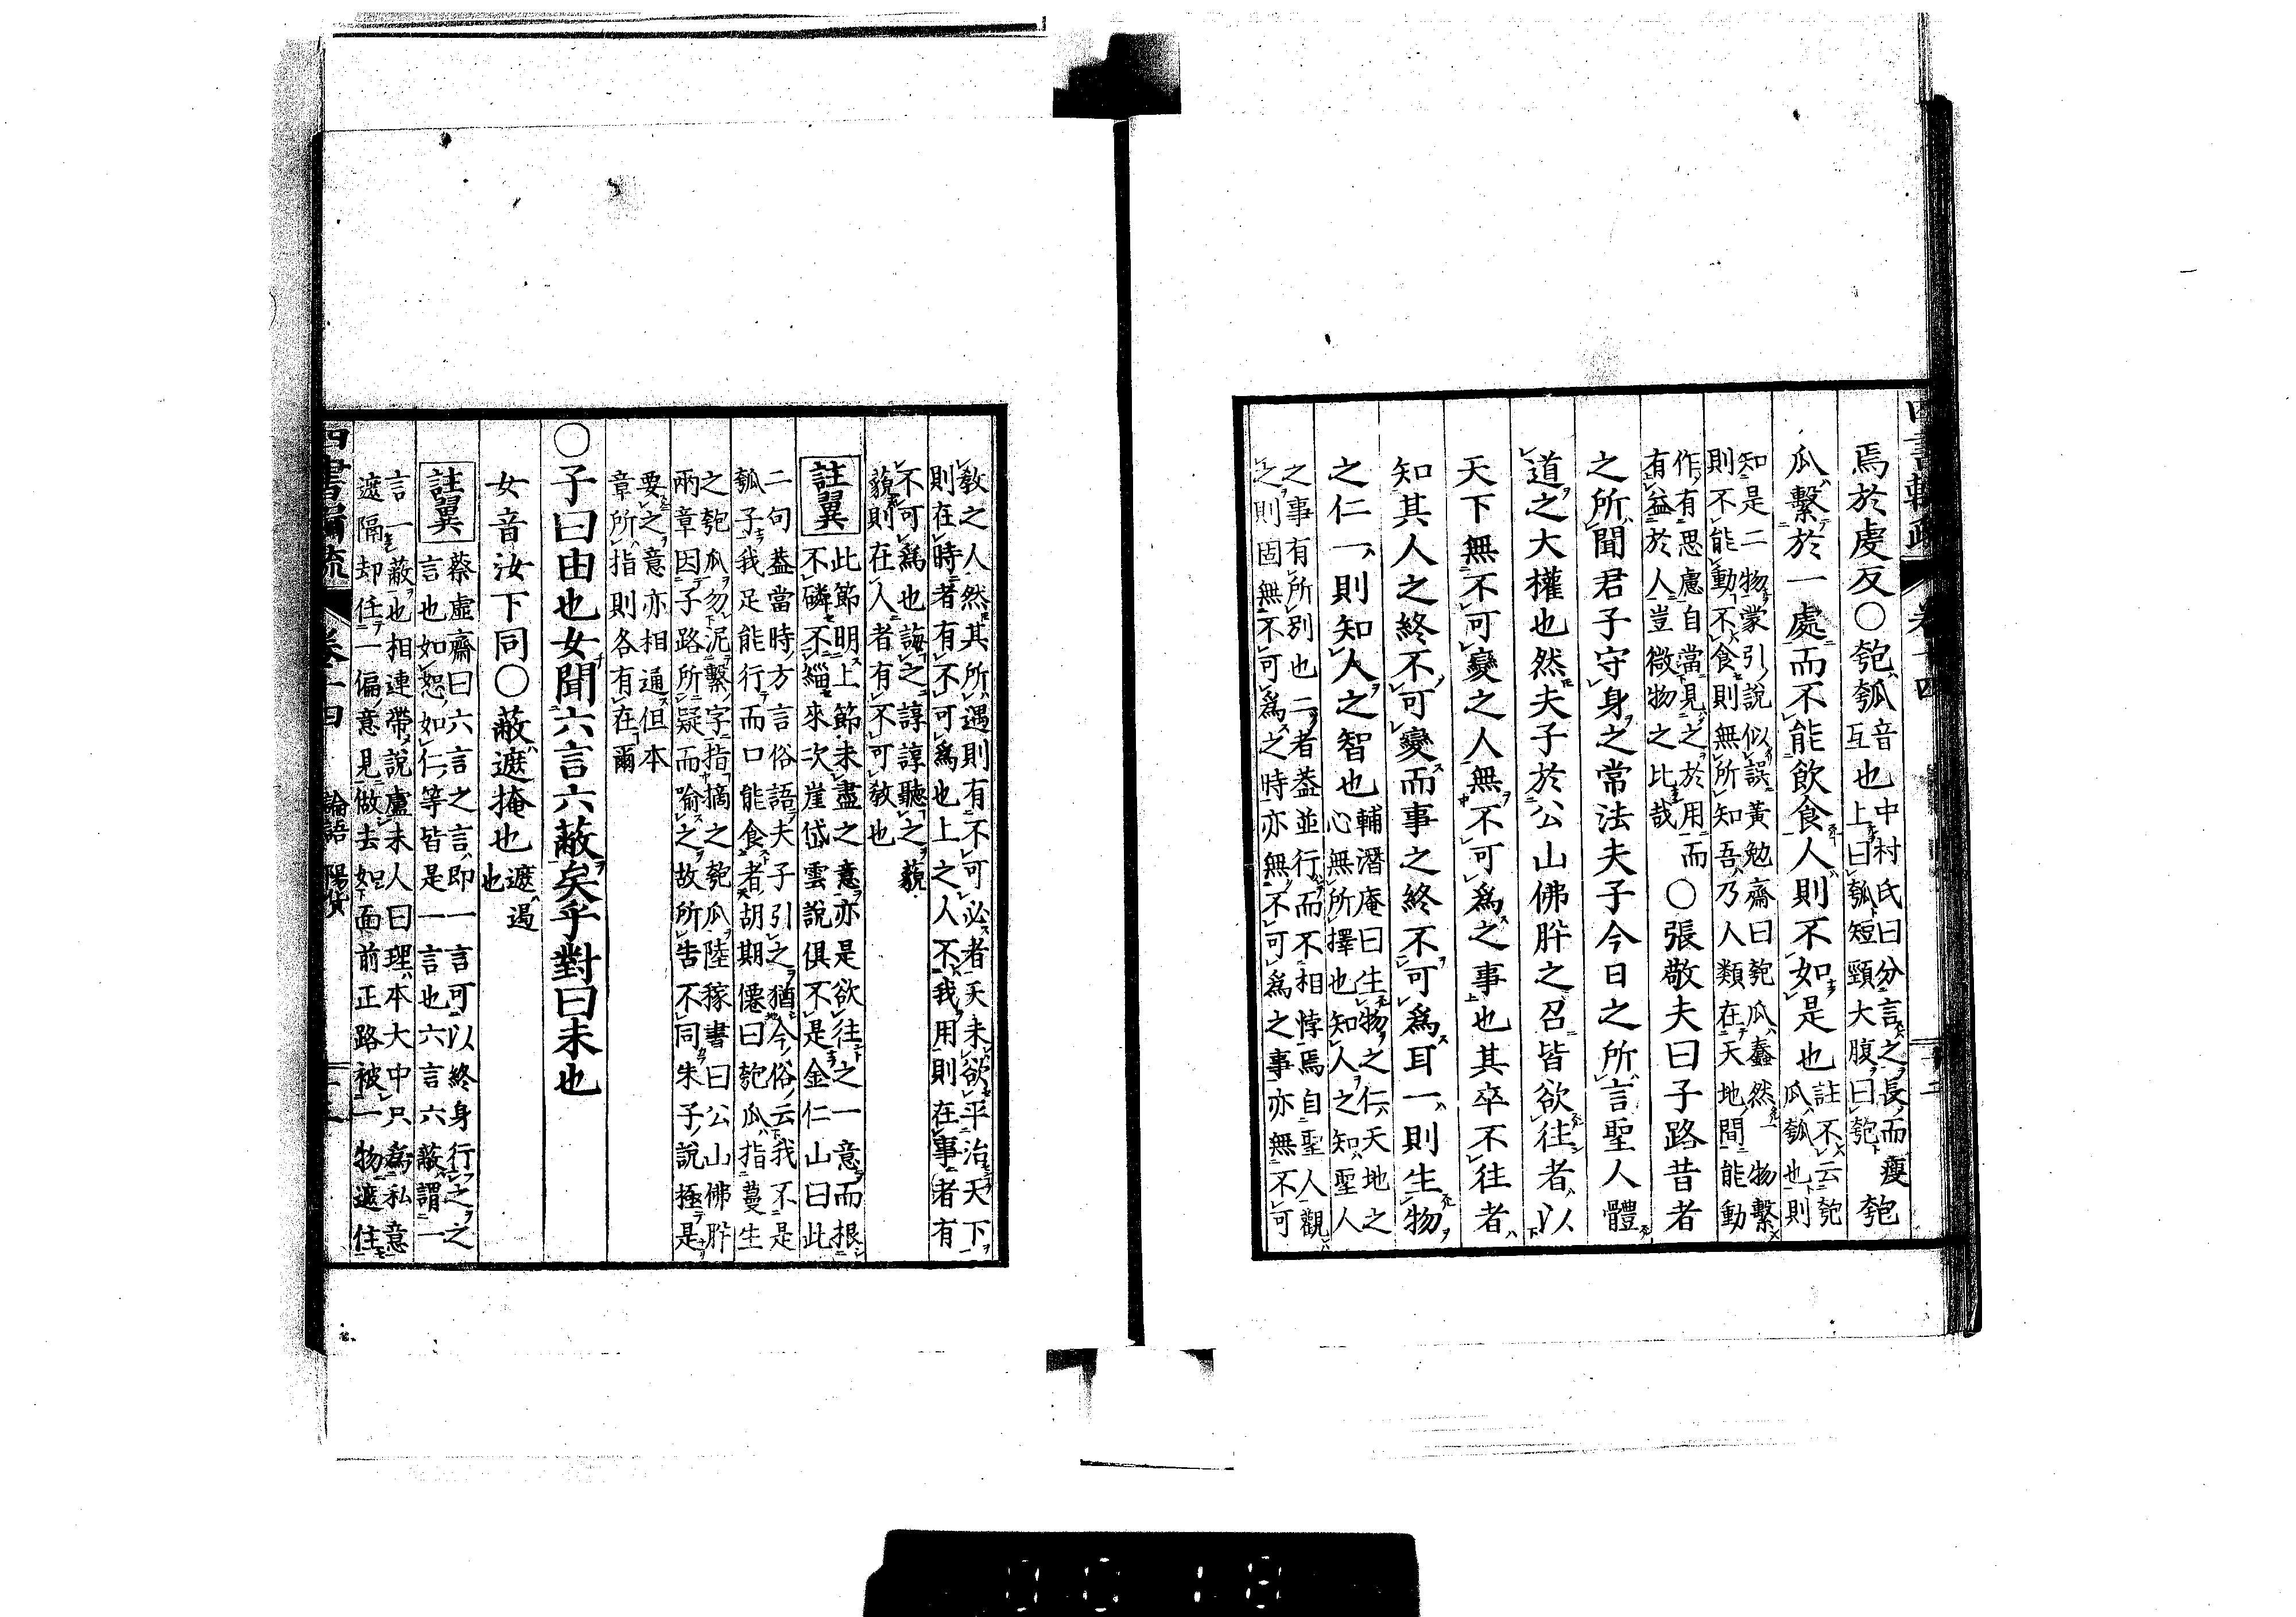 焉於虔反○匏瓠音互也中村氏曰分言之長而瘦上曰瓠短頸大腹曰匏匏
瓜繫於一處而不能飲食人則不如是也註不云匏瓜瓠也則
知是二物蒙引說似誤黃勉齋曰匏瓜蠢然一物繫
則不能動不食則無所知吾乃人類在天地間能動
作有思慮自當見之於用而
有益於人豈微物之比哉○張敬夫曰子路昔者
之所聞君子守身之常法夫子今日之所言聖人體
道之大權也然夫子於公山佛肸之召皆欲往者以
天下無不可變之人無不可爲之事也其卒不往者
知其人之終不可變而事之終不可爲耳一則生物
之仁一則知人之智也輔潛庵曰生物之仁天地之
心無所擇也知人之知聖人
之事有所別也二者蓋並行而不相悖焉自聖人觀
之則固無不可爲之時亦無不可爲之事亦無不可
教之人然其所遇則有不可必者天未欲平治天下
則在時者有不可爲也上之人不我用則在事者有
不可爲也誨之諄諄聽之藐
藐則在人者有不可教也
註翼 此節明上節未盡之意亦是欲往之一意而根
不磷不緇來次崖岱雲說俱不是金仁山曰此
二句蓋當時方言俗語夫子引之猶今俗云我不是
瓠子我足能行而口能食者胡期僊曰匏瓜指蔓生
之匏瓜勿泥繫字指摘之匏瓜陸稼書曰公山佛肸
兩章因子路所疑而喻之故所告不同朱子說極是
要之意亦相通但本
章所指則各有在爾
○子曰由也女聞六言六蔽矣乎對曰未也
女音汝下同○蔽遮掩也遮遏也
註翼 蔡虛齋曰六言之言即一言可以終身行之之
言也如恕如仁等皆是一言也六言六蔽謂一
言一蔽也相連帶說盧未人曰理本大中只爲私意
遮隔却任一偏意見做去如面前正路被一物遮住
論語 陽貨
0018